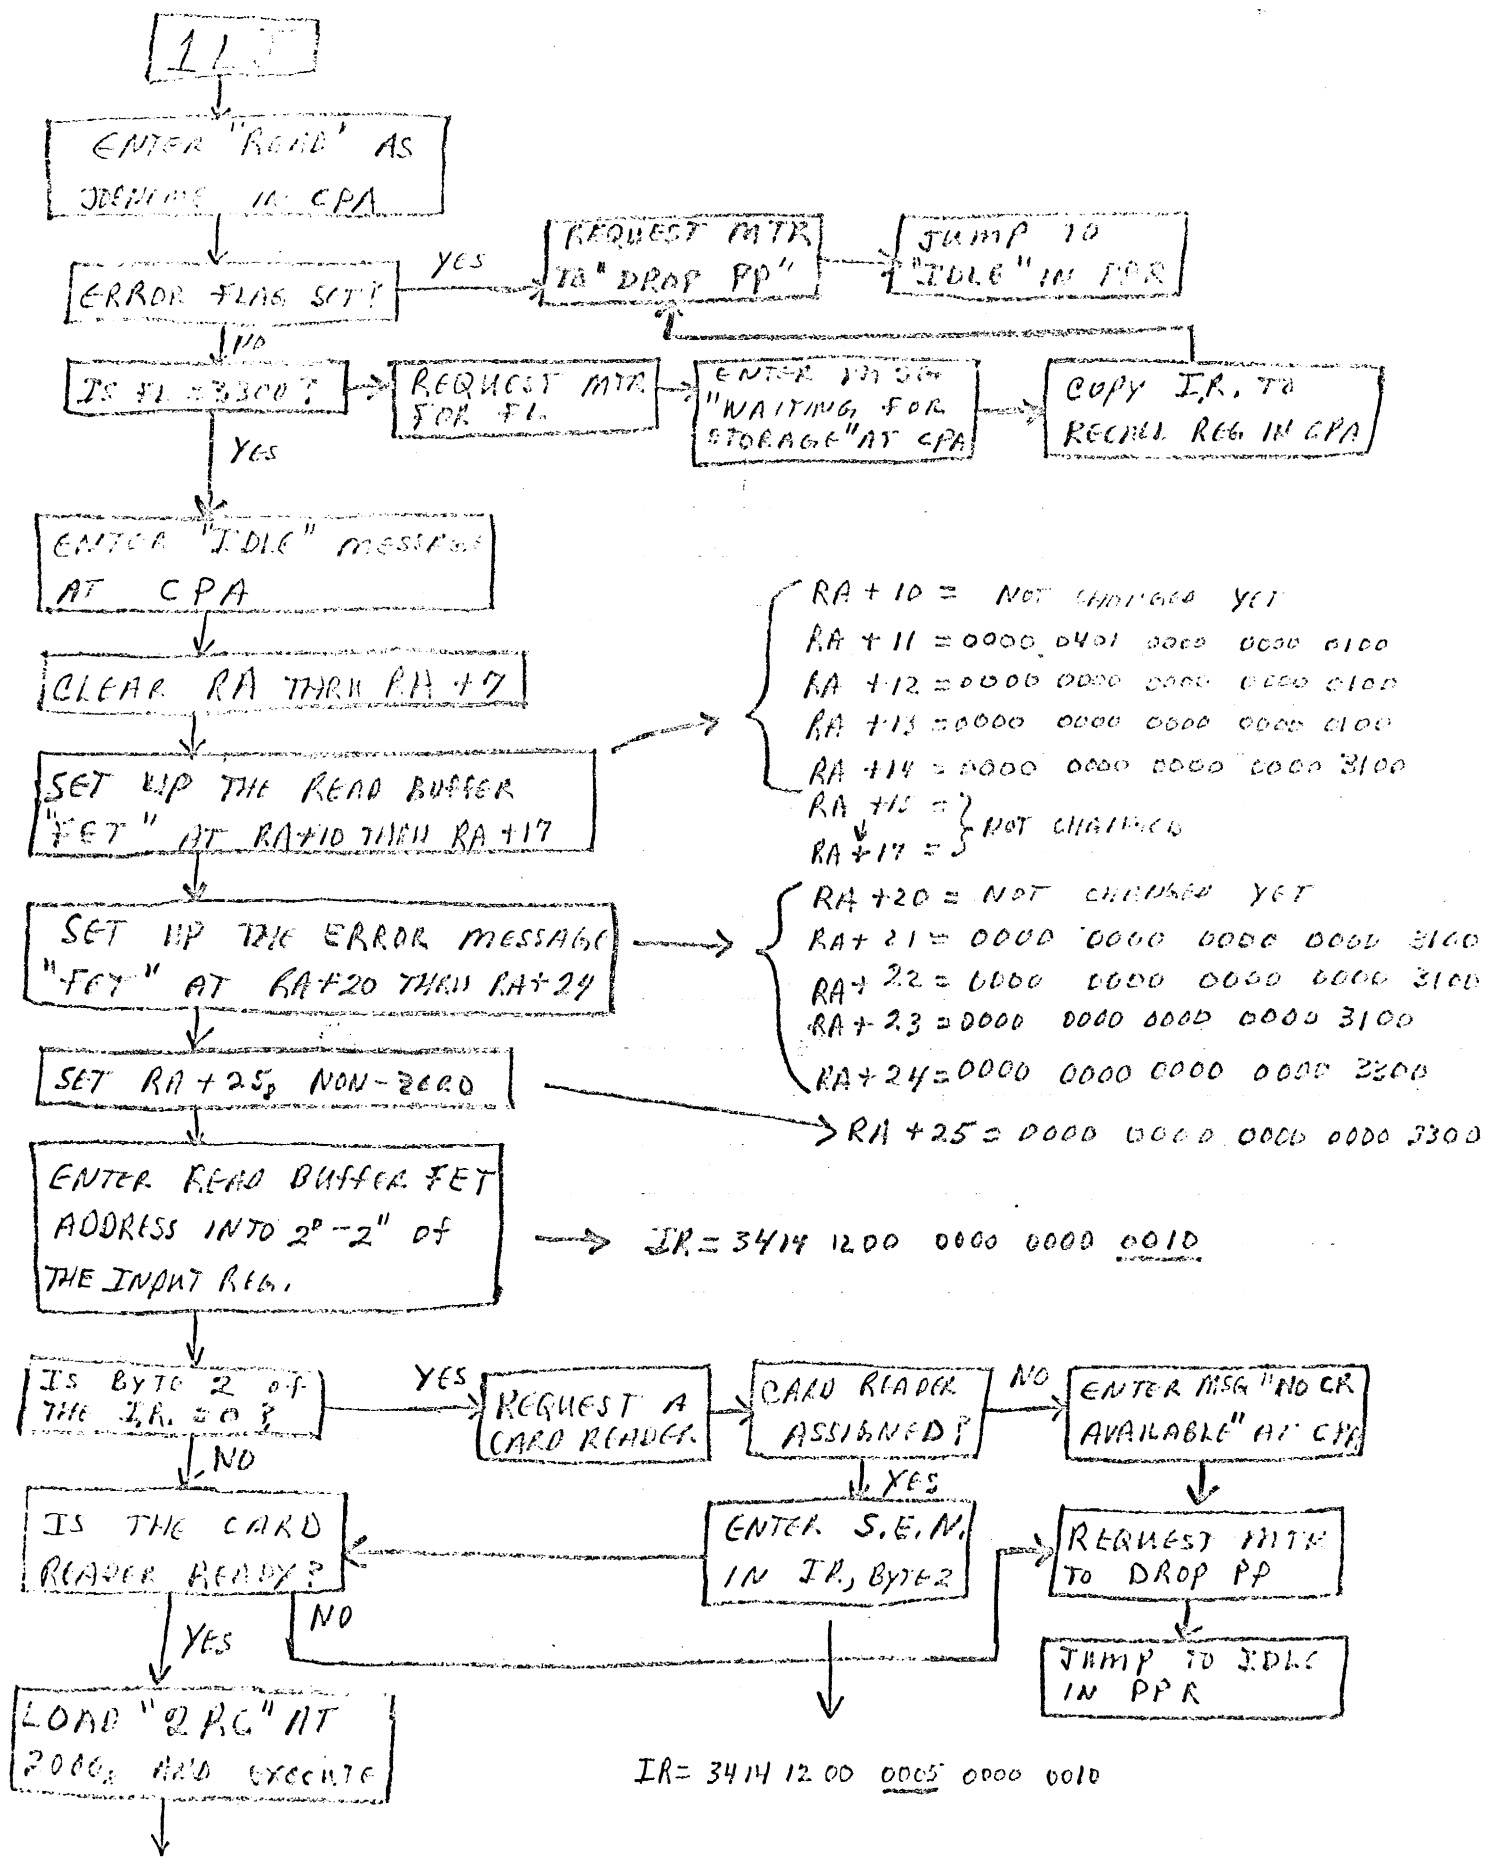 1LJ
ENTER "READ" AS
JOBNAME IN CPA
ERROR FLAG SET?
YES
REQUEST MTR
TO "DROP PP"
JUMP TO
"IDLE" IN PPR
NO
IS FL = 3300?
REQUEST MTR
FOR FL
ENTER MSG
"WAITING FOR
STORAGE" AT CPA
COPY I.R. TO
RECALL REG IN CPA
YES
ENTER "IDLE" MESSAGE
AT CPA
CLEAR RA THRU RA +7
SET UP THE READ BUFFER
"FET" AT RA+10 THRU RA +17
RA + 10 = NOT CHANGED YET
RA + 11 = 0000 0401 0000 0000 0100
RA +12 = 0000 0000 0000 0000 0100
RA +13 = 0000 0000 0000 0000 0100
RA +14 = 0000 0000 0000 0000 3100
RA +15 =
RA +17 = NOT CHANGED
SET UP THE ERROR MESSAGE
"FET" AT RA+20 THRU RA+24
RA +20 = NOT CHANGED YET
RA+ 21 = 0000 0000 0000 0000 3100
RA+ 22 = 0000 0000 0000 0000 3100
RA+ 23 = 0000 0000 0000 0000 3100
RA+ 24 = 0000 0000 0000 0000 3300
SET RA + 25₈ NON-ZERO
RA +25 = 0000 0000 0000 0000 3300
ENTER READ BUFFER FET
ADDRESS INTO 2⁰-2¹¹ OF
THE INPUT REG.
IR = 3414 1200 0000 0000 0010
IS BYTE 2 OF
THE I.R. = 0?
YES
REQUEST A
CARD READER
CARD READER
ASSIGNED?
NO
ENTER MSG "NO CR
AVAILABLE" AT CPA
NO
YES
IS THE CARD
READER READY?
ENTER S.E.N.
IN IR, BYTE 2
REQUEST MTR
TO DROP PP
YES
NO
JUMP TO IDLE
IN PPR
LOAD "2RC" AT
2000₈ AND EXECUTE
IR= 3414 12 00 0005 0000 0010